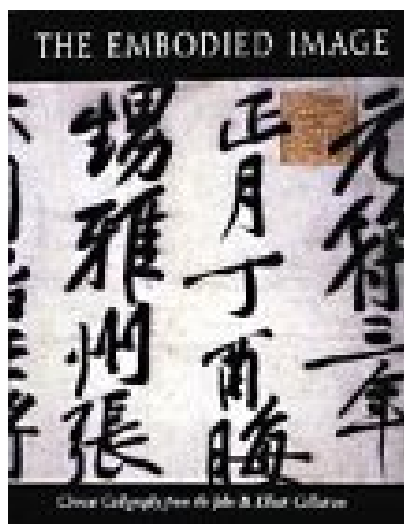 THE EMBODIED IMAGE
元符三年
正月丁酉晦
甥雅州張
Chinese Calligraphy from the John B. Elliott Collection